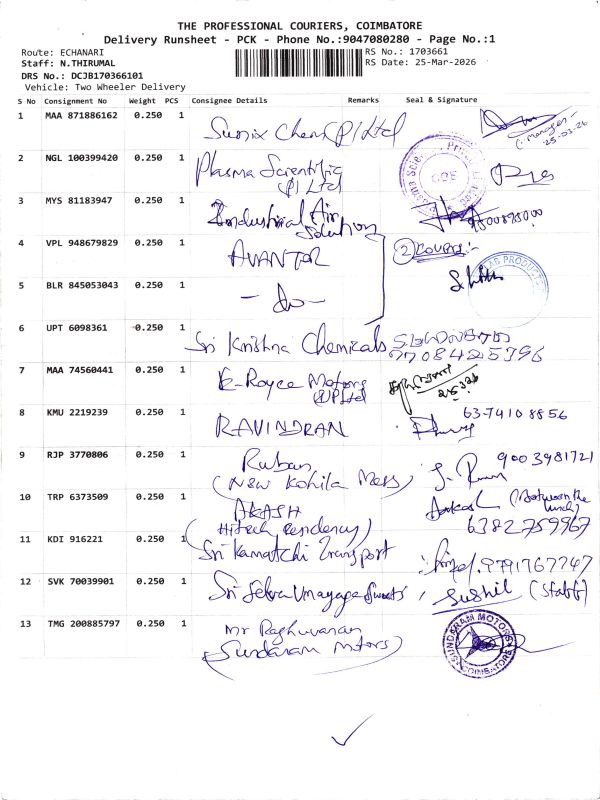 THE PROFESSIONAL COURIERS, COIMBATORE
Delivery Runsheet - PCK - Phone No.:9047080280 - Page No.:1
Route: ECHANARI RS No.: 1703661
Staff: N.THIRUMAL RS Date: 25-Mar-2026
DRS No.: DCJB170366101
Vehicle: Two Wheeler Delivery
S No Consignment No Weight PCS Consignee Details Remarks Seal & Signature
1 MAA 871886162 0.250 1 Sunix Chem (P) Ltd
(Manager)
25-03-26
2 NGL 100399420 0.250 1 Plasma Scientific
(P) Ltd
3 MYS 81183947 0.250 1 Industrial Air
Solution
4 VPL 948679829 0.250 1 AVANTOR (2) Covers
5 BLR 845053043 0.250 1 - do -
6 UPT 6098361 0.250 1 Sri Krishna Chemicals
9708425396
7 MAA 74560441 0.250 1 E-Royce Motors
(I) P Ltd
8 KMU 2219239 0.250 1 RAVINDRAN 6374108856
9 RJP 3770806 0.250 1 Ruban 9003981721
(New Kohila Mess)
10 TRP 6373509 0.250 1 AKASH Aakash
(Hitech 6382759967
11 KDI 916221 0.250 1 Sri Kamatchi Transport 9791767747
12 SVK 70039901 0.250 1 Sri Selva Vinayaga Sweets, Sushil (Staff)
13 TMG 200885797 0.250 1 Mr Raghuvaran
(Sundaram Motors)
SUNDARAM MOTORS
COIMBATORE